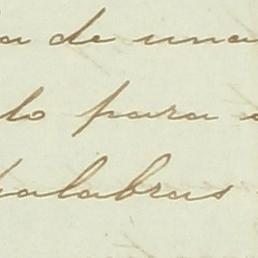 a de una
lo para
palabras